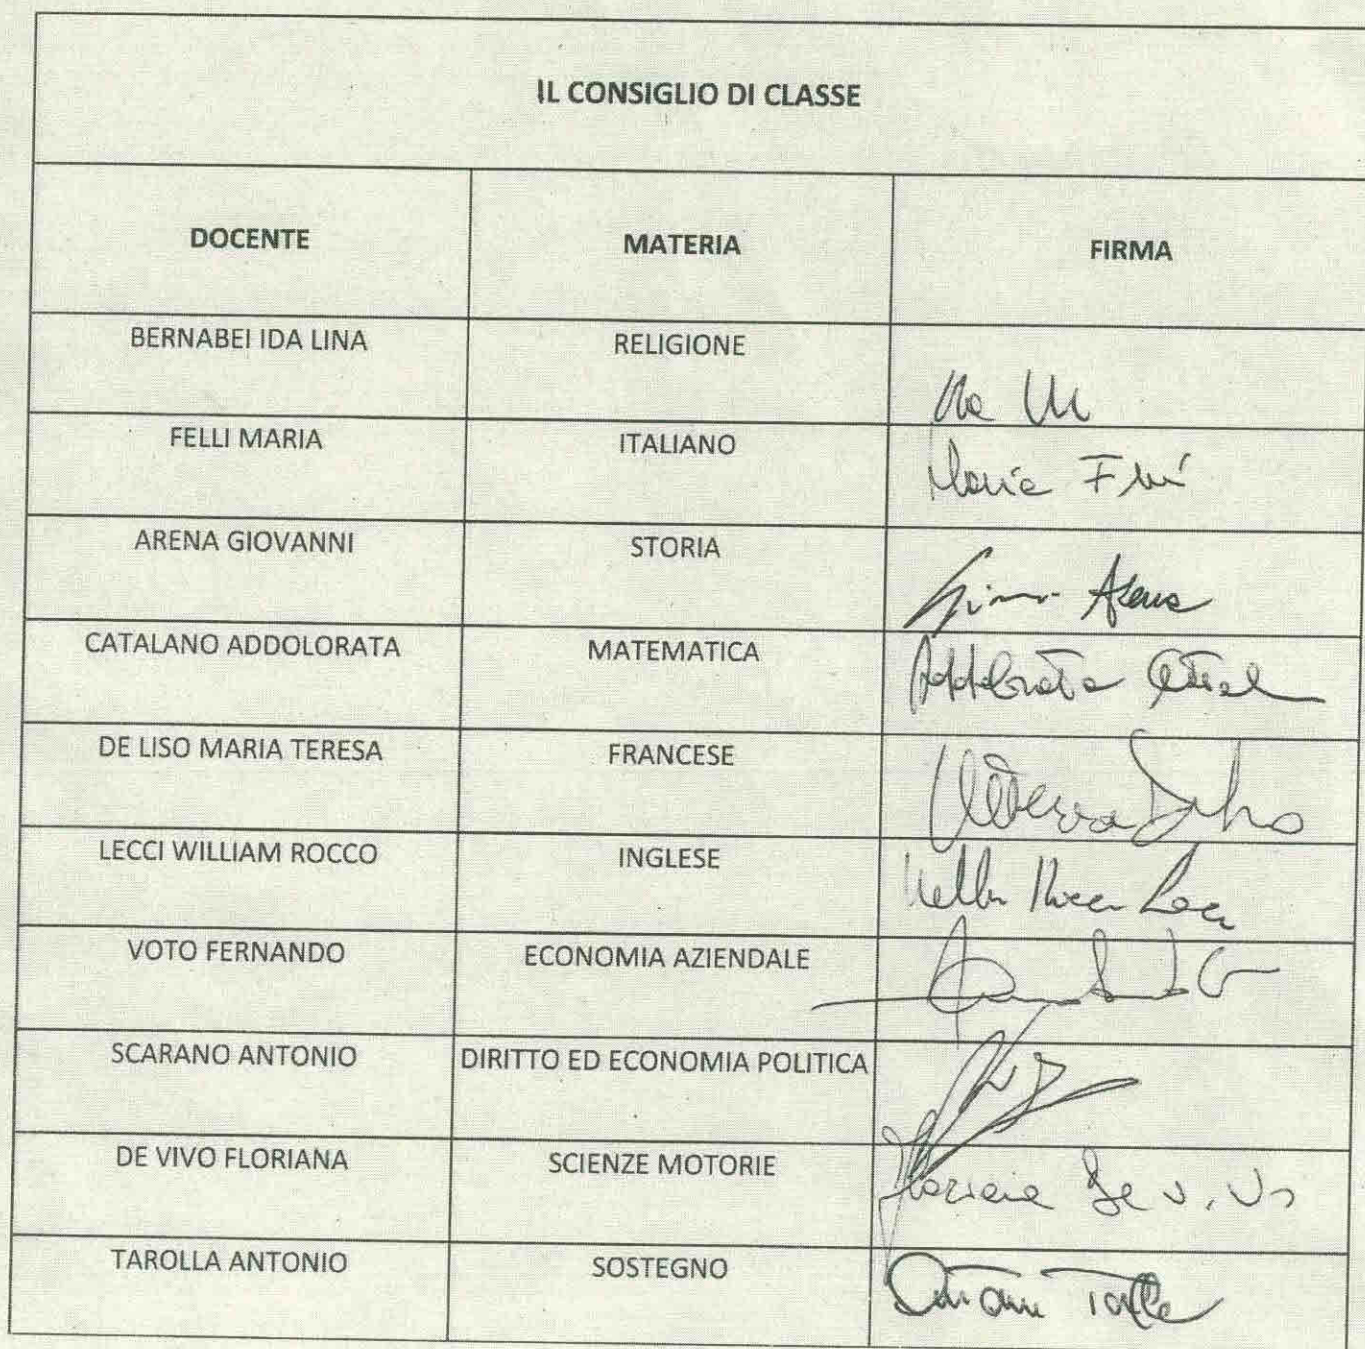 IL CONSIGLIO DI CLASSE
DOCENTE MATERIA FIRMA
BERNABEI IDA LINA RELIGIONE
FELLI MARIA ITALIANO Maria
ARENA GIOVANNI STORIA Arena
CATALANO ADDOLORATA MATEMATICA Addolorata
DE LISO MARIA TERESA FRANCESE
LECCI WILLIAM ROCCO INGLESE
VOTO FERNANDO ECONOMIA AZIENDALE
SCARANO ANTONIO DIRITTO ED ECONOMIA POLITICA
DE VIVO FLORIANA SCIENZE MOTORIE
TAROLLA ANTONIO SOSTEGNO